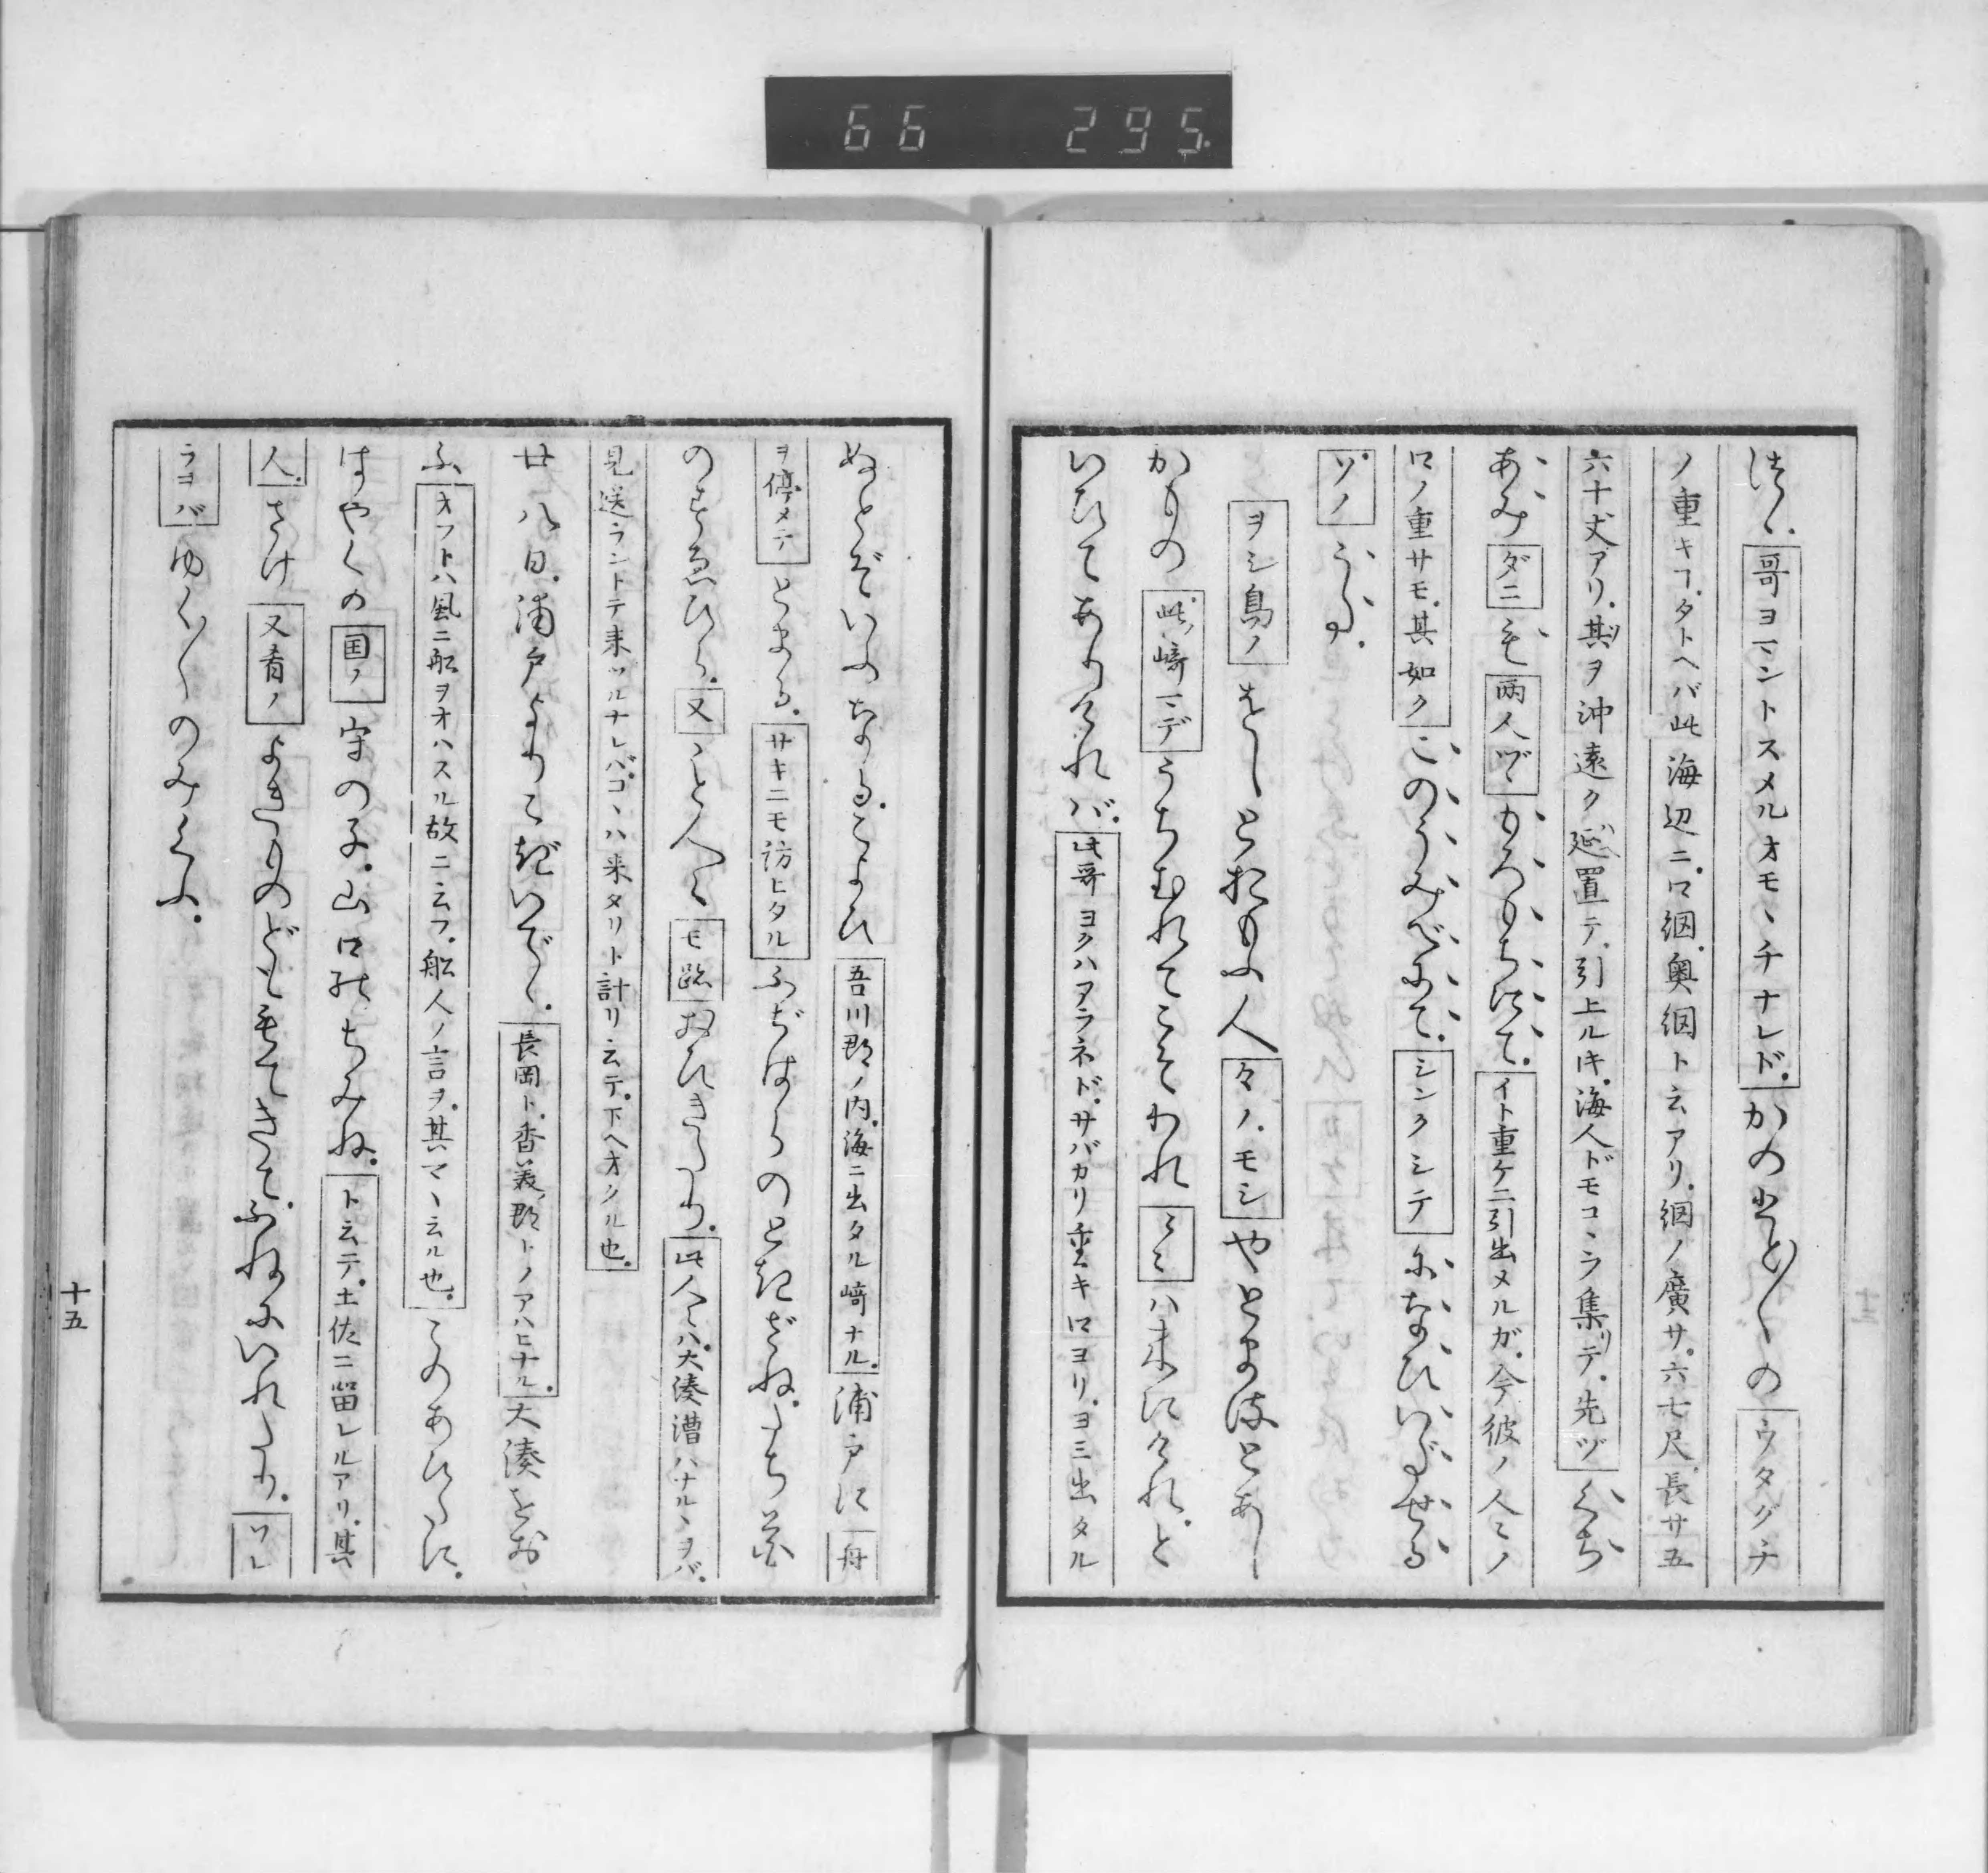 66 295
はく、哥ヨマントスメルオモヽチナレド、かの人〴〵のウタグチ
ノ重キコ、タトヘバ此海辺ニ、口網、奥網ト云アリ、網ノ廣サ、六七尺長サ五
六十丈アリ、其ヲ沖遠ク延置テ、引上ル𪜈、海人ドモコヽラ集リテ、先ヅくち
あみダニも両人ヅヽもろもちにて、イト重ケニ引出ヌルガ、今彼ノ人ミノ
口ノ重サモ、其如クこのうみべにて、シンクシテになひいだせる
ソノうた、
ヲシ鳥ノをしとおもふ人々ノ、モシやとまるとあし
かもの此崎マデうちむれてこそわれミミハ来にけれ、と
いひてありければ、此哥ヨクハアラネド、サバカリ重キ口ヨリ、ヨミ出タル
ぬとぞいふなる、こよひ吾川郡ノ内、海ニ出タル崎ナル、浦戸に舟
ヲ停メテとまる、サキニモ訪ヒタルふぢはらのときざね、たち花
のすゑひら、又こと人〻モ跡おひきたり、此人ミハ、大湊漕ハナルヽヲバ、
見送ラントテ来ツルナレバ、コヽハ来タリト計リ云テ、下ヘオクル也、
廿八日、浦戸よりこぎいでゝ、長岡ト、香美郡トノアハヒナル、大湊をお
ふ、オフトハ風ニ舩ヲオハスル故ニ云フ、舩人ノ言ヲ、其マヽ云ル也、このあひだに、
はやくの国ノ守の子、山口のちみね、ト云テ、土佐ニ留レルアリ、其
人、さけ又肴ノよきものども、もてきて、ふねにいれたり、ソレ
ラヲバゆく〳〵のみくふ、
十五